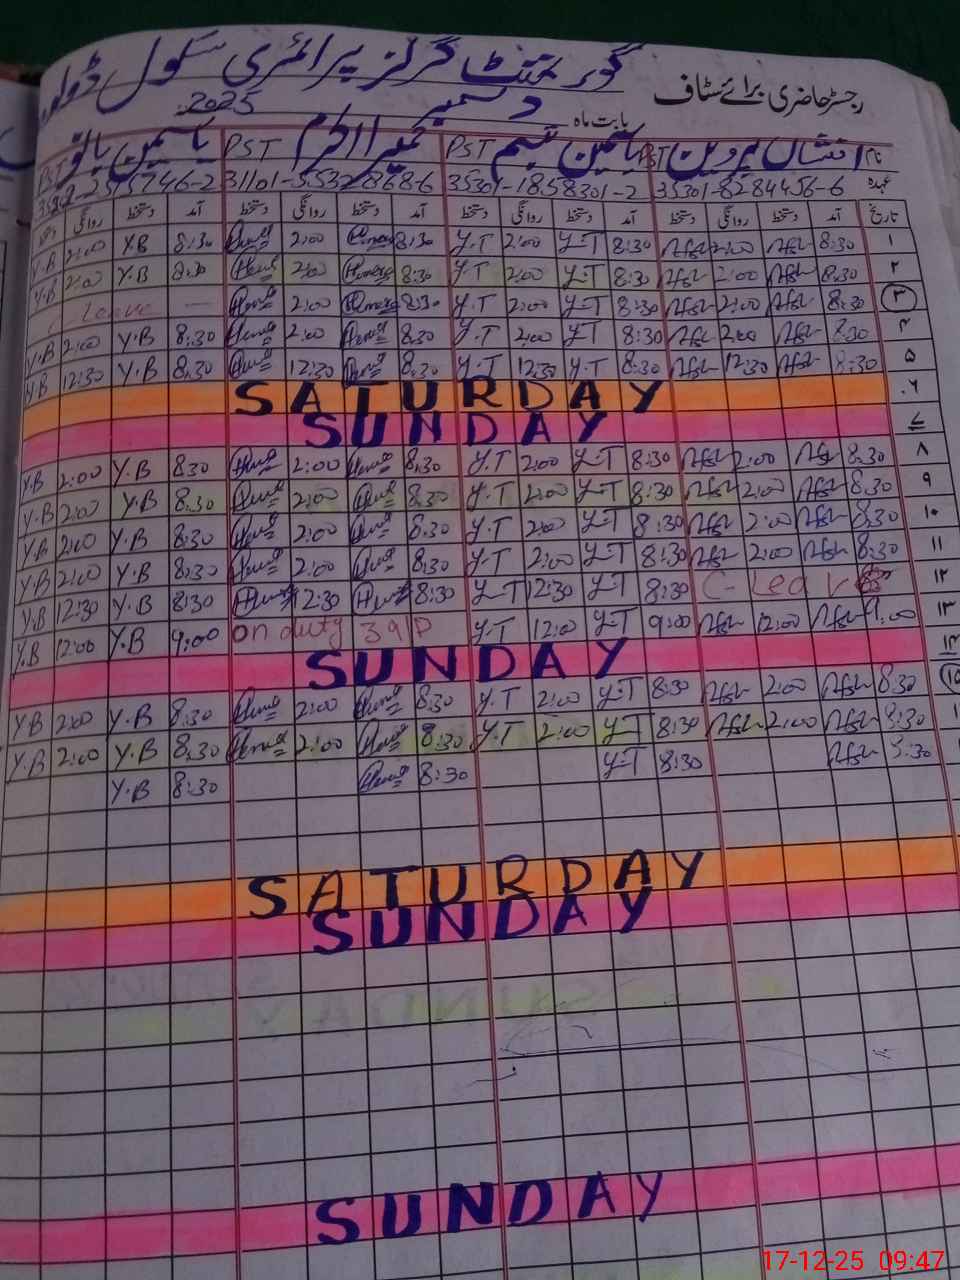 گورنمنٹ گرلز پرائمری سکول
رجسٹر حاضری برائے سٹاف
بابت ماہ دسمبر 2025
نام افشاں پروین PST یاسمین تبسم PST حمیرا اکرم PST یاسمین بانو PST
عہدہ 35301-8284456-6 35301-1858301-2 31101-5532868-6
تاریخ آمد دستخط روانگی دستخط آمد دستخط روانگی دستخط آمد دستخط روانگی دستخط آمد دستخط روانگی دستخط
۱ 8:30 2:00 8:30 Y-T 2:00 Y.T 8:30 2:00 8:30 Y.B 2:00 Y.B
۲ 8:30 2:00 8:30 Y-T 2:00 Y.T 8:30 2:00 8:30 Y.B 2:00 Y.B
۳ 8:30 2:00 8:30 Y-T 2:00 Y.T 8:30 2:00 Leave
۴ 8:30 2:00 8:30 Y-T 2:00 Y.T 8:30 2:00 8:30 Y.B 2:00 Y.B
۵ 8:30 12:30 8:30 Y.T 12:30 Y.T 8:30 12:30 8:30 Y.B 12:30 Y.B
۶ SATURDAY
۷ SUNDAY
۸ 8:30 2:00 8:30 Y-T 2:00 Y.T 8:30 2:00 830 Y.B 2:00 Y.B
۹ 8:30 2:00 8:30 Y-T 2:00 Y.T 8:30 2:00 8:30 Y.B 2:00 Y.B
۱۰ 8:30 2:00 8:30 Y-T 2:00 Y.T 8:30 2:00 8:30 Y.B 2:00 Y.B
۱۱ 8:30 2:00 8:30 Y-T 2:00 Y.T 8:30 2:00 8:30 Y.B 2:00 Y.B
۱۲ C-Leave 8:30 Y-T 12:30 Y-T 8:30 12:30 8:30 Y.B 12:30 Y.B
۱۳ 9:00 12:00 9:00 Y-T 12:00 Y.T on duty 39/D 9:00 Y.B 12:00 Y.B
۱۴ SUNDAY
۱۵ 8:30 2:00 8:30 Y-T 2:00 Y.T 8:30 2:00 8:30 Y.B 2:00 Y.B
8:30 2:00 8:30 Y-T 2:00 Y.T 8:30 2:00 8:30 Y.B 2:00 Y.B
8:30 8:30 Y-T 8:30 8:30 Y.B
SATURDAY
SUNDAY
SUNDAY
17-12-25 09:47